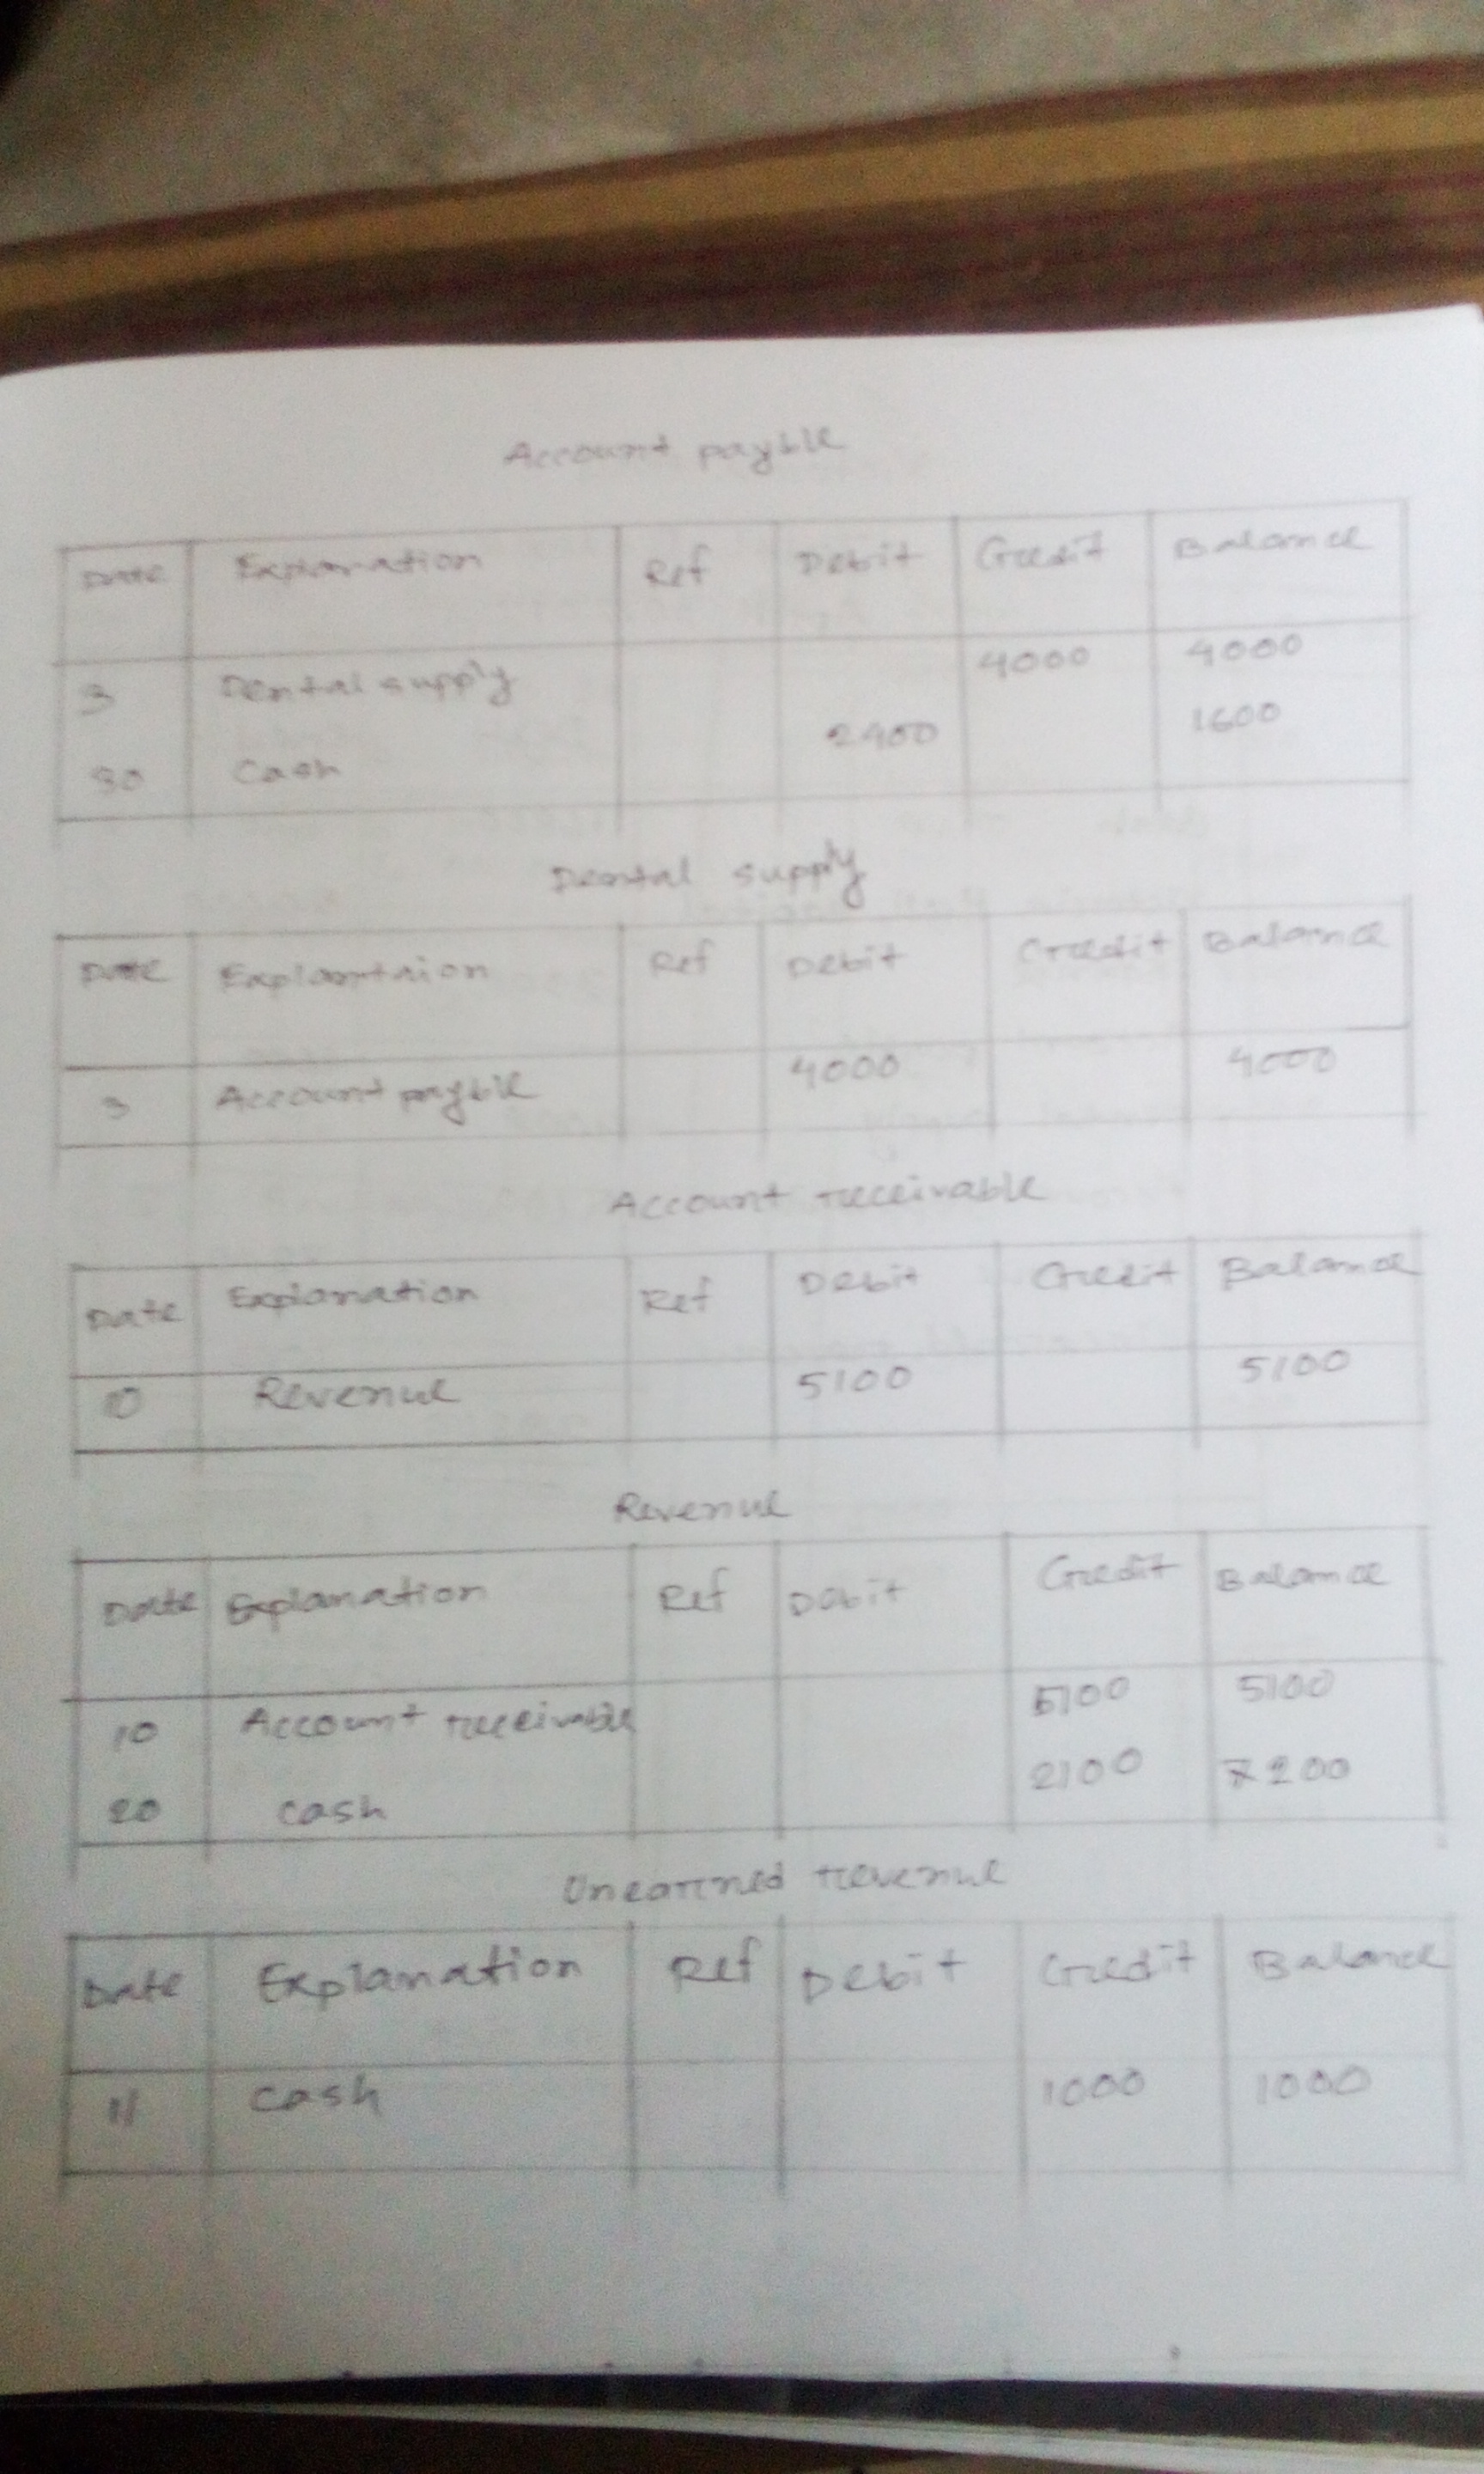 Account payble
Date Explanation Ref Debit Credit Balance
3 Dental supply 4000 4000
30 Cash 2400 1600
Dental supply
Date Explantaion Ref Debit Credit Balance
3 Account payble 4000 4000
Account receivable
Date Explanation Ref Debit Credit Balance
10 Revenue 5100 5100
Revenue
Date Explanation Ref Debit Credit Balance
10 Account receivable 5100 5100
20 cash 2100 7200
Unearned revenue
Date Explanation Ref Debit Credit Balance
11 cash 1000 1000